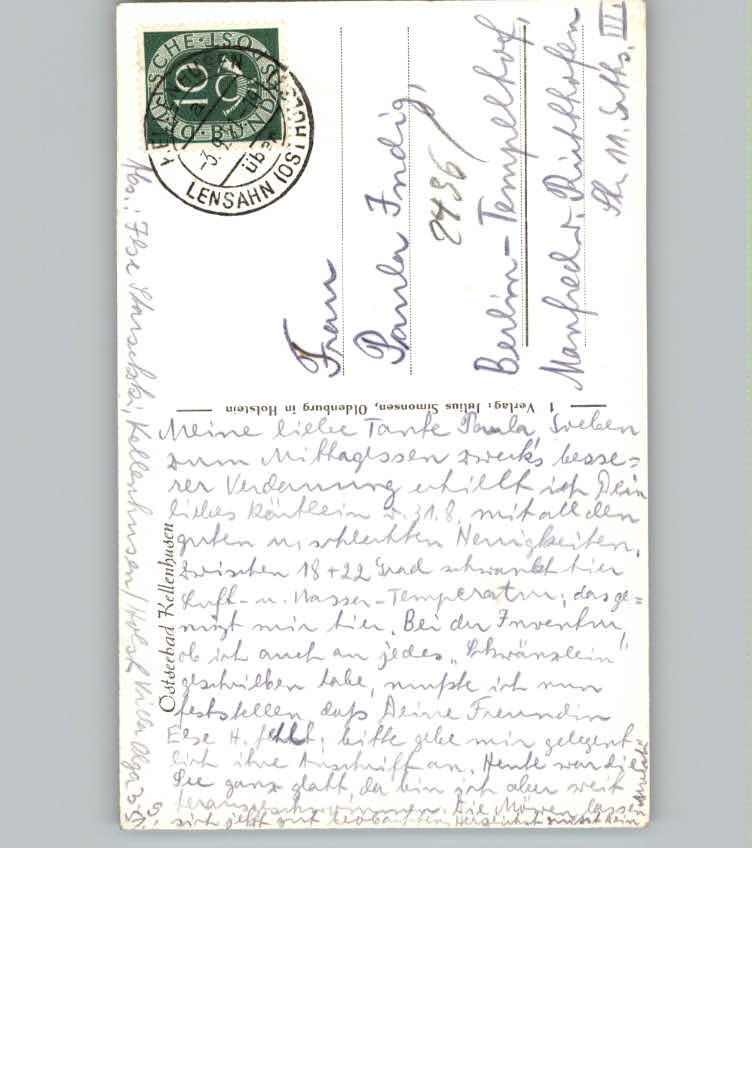 DEUTSCHE BUNDESPOST
10
KELLENHUSEN
über
LENSAHN (OSTHOLST)
Frau
Paula Indig,
2436
Berlin-Tempelhof,
Manfred v. Richthofen
Str. 11. Gths. III
1 Verlag: Julius Simonsen, Oldenburg in Holstein
Ostseebad Kellenhusen
Abs.: Ilse Kellenhusen/Holst Villa Olga
Meine liebe Tante Paula, Soeben
zum Mittagessen zwecks besse=
rer Verdauung erhielt ich Dein
liebes Kärtlein v. 31.8. mit all den
guten u. schlechten Neuigkeiten.
Zwischen 18+22 Grad schwankt hier
Luft- u. Wasser-Temperatur; das ge=
nügt mir hier. Bei der Inventur,
ob ich auch an jedes "Schwänzlein"
geschrieben habe, mußte ich nun
feststellen daß Deine Freundin
Else H. fehlt; bitte gebe mir gelegent=
lich ihre Anschrift an. Heute war die
See ganz glatt, da bin ich aber weit
herausgeschwommen. Die Möven lassen
sich jetzt gut beobachten. Herzlichst grüßt Dein